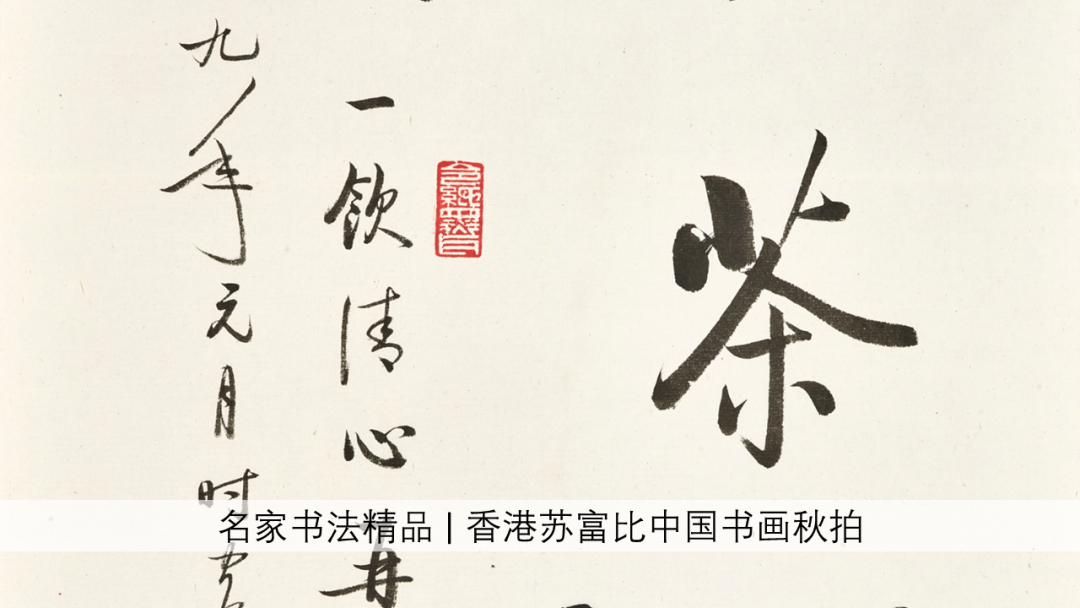 茶
一飲清心再
九年元月时
名家书法精品 | 香港苏富比中国书画秋拍